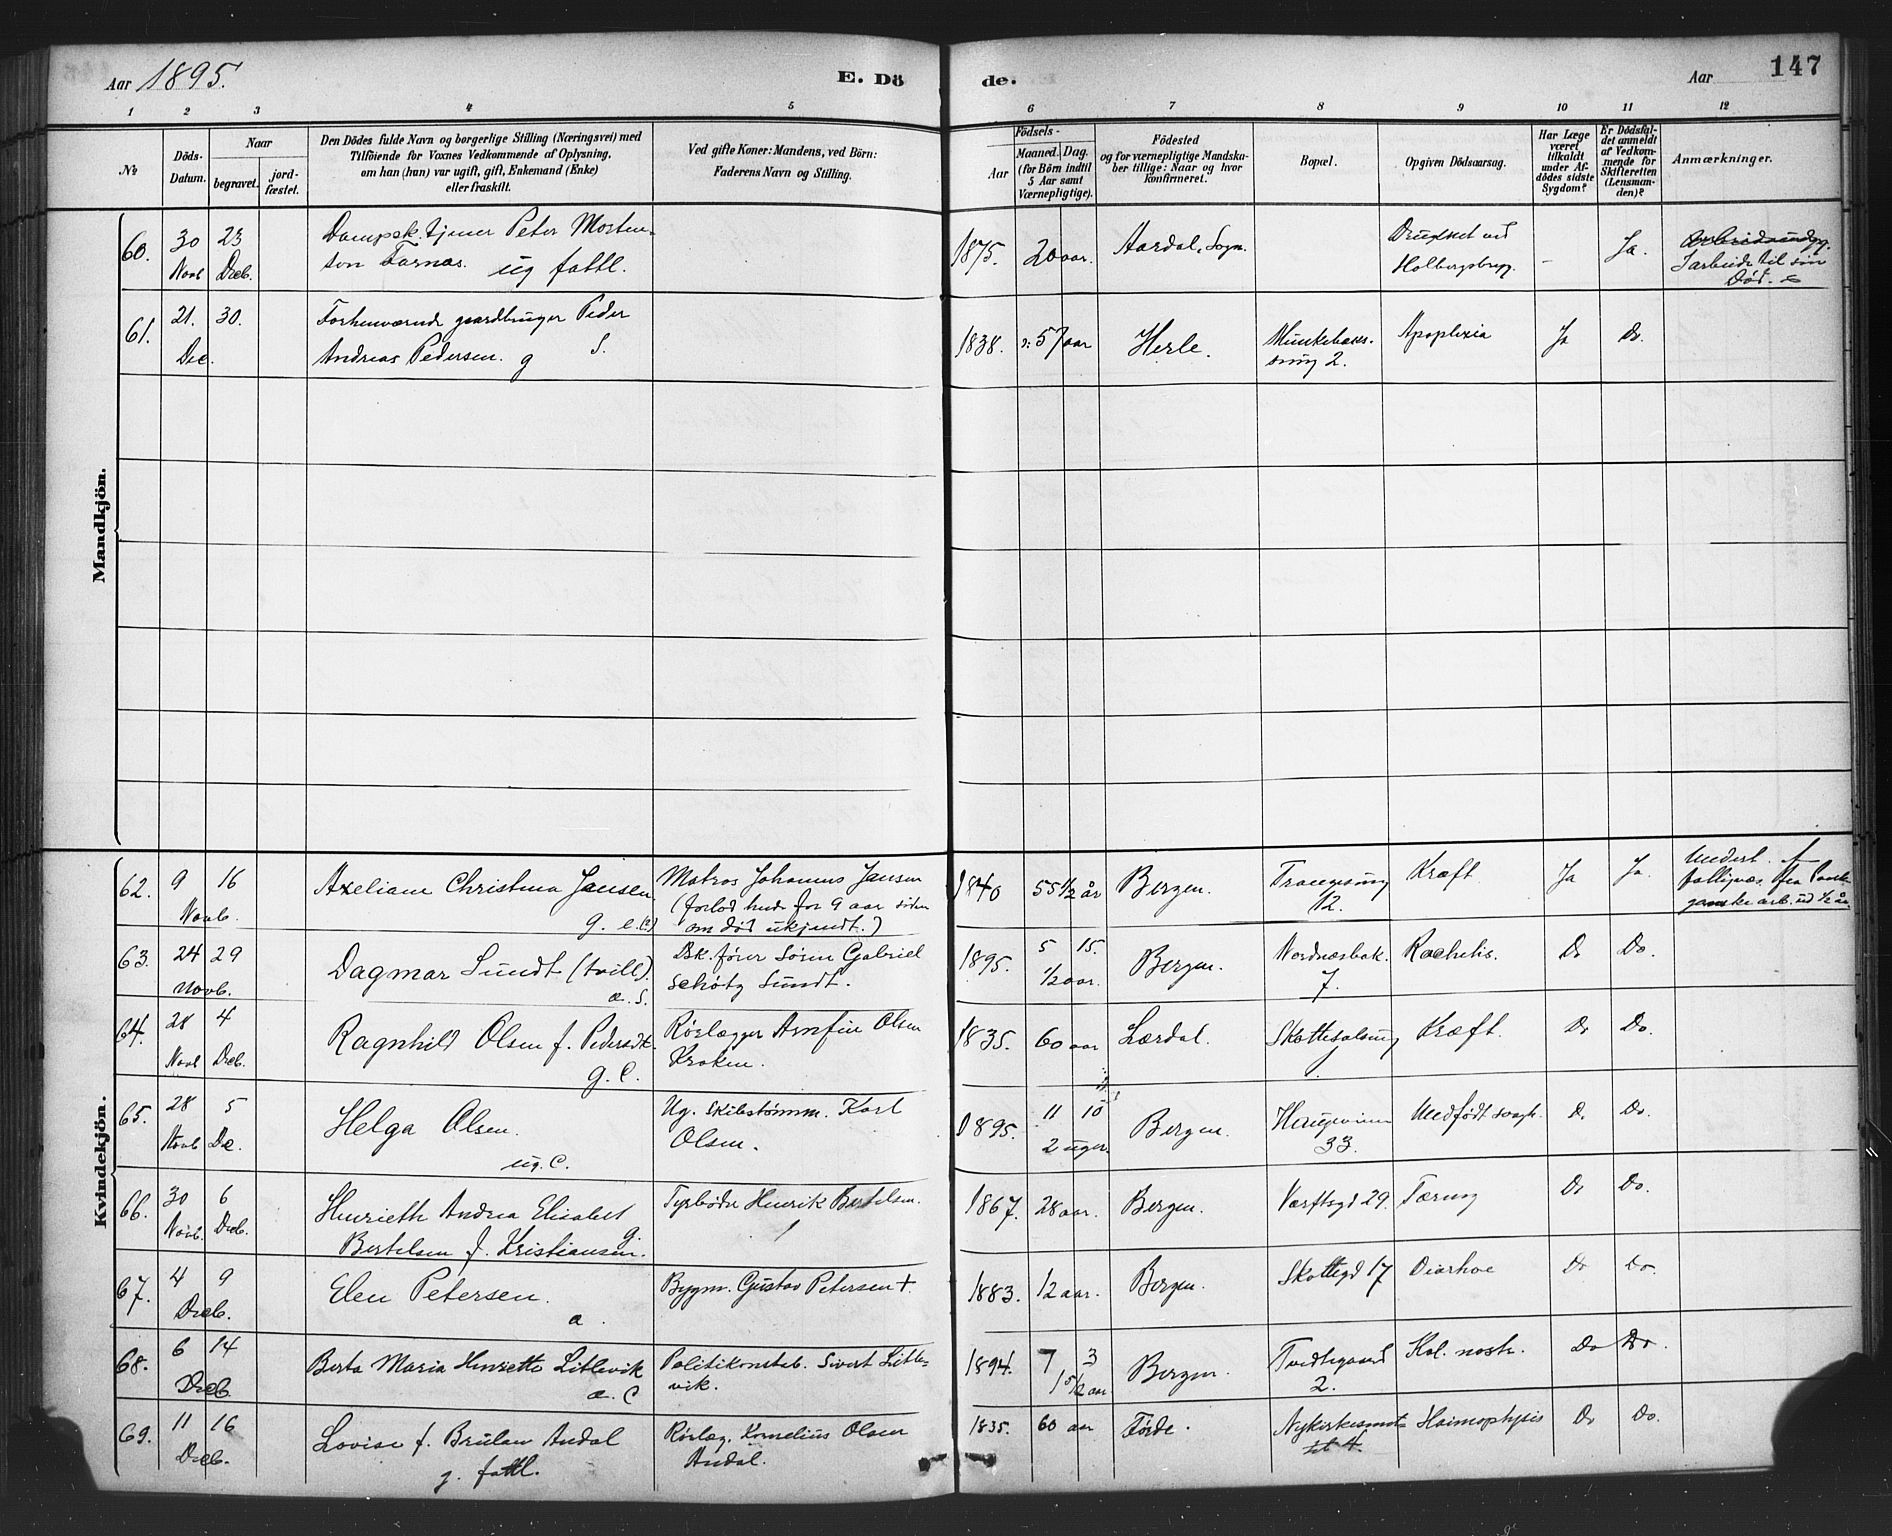 Aar 1895.
E. Dö de.
Aar
147
1 2 3 4 5 6 7 8 9 10 11 12
No
Döds-Datum.
Naar
begravet.
jord-fæstet.
Den Dödes fulde Navn og borgerlige Stilling (Næringsvei) med
Tilföiende for Voxnes Vedkommende af Oplysning,
om han (hun) var ugift, gift, Enkemand (Enke)
eller fraskilt.
Ved gifte Koner: Mandens, ved Börn:
Faderens Navn og Stilling.
Födsels-
Aar
Maaned. Dag.
(for Börn indtil
5 Aar samt
Værnepligtige).
Födested
og for værnepligtige Mandska-
ber tillige: Naar og hvor
konfirmeret.
Bopæl.
Opgiven Dödsaarsag.
Har Læge
været
tilkaldt
under Af-
dödes sidste
Sygdom?
Er Dödsfal-
det anmeldt
af Vedkom-
mende for
Skifteretten
(Lensman-
den)?
Anmærkninger.
Mandkjön.
60. 30 Novb 23 Dceb. Dampsk.tjener Peter Morten-
sen Farnæs. ug fattl.
1875. 20 aar. Aardal, Sogn. Druknet ved
Holbergsbrygg. - Ja.
I arbeide til sin
Död.
61. 21. Dec. 30. Forhenværende gaardbruger Peder
Andreas Pedersen. g S.
1838. 57 aar Herle. Munkebæks-
smug 2. Apoplexia Ja Do.
Kvindekjön.
62. 9 Novb. 16 Axeliane Christina Jansen
g. e.(?)
Matros Johannes Jansen
(forlod hende for 9 aar siden
om död ukjendt.)
1840 55 1/2 år Bergen. Trangesmug
12. Kræft Ja Ja.
Underst. af
fattigvæs.
63. 24 Novb. 29 Dagmar Sundt (tvill).
a. S.
Dsk.förer Sören Gabriel
Schötz Sundt.
1895. 5 15.
1/2 aar. Bergen. Nordnæsbak.
7. Rachitis. Do Do.
64. 28 Novb 4 Dceb. Ragnhild Olsen f. Pedersdt.
g. C.
Rörlægger Arnfin Olsen
Kroken.
1835. 60 aar Lærdal. Skottesalsmug Kræft. Do Do.
65. 28 Novb 5 Dec. Helga Olsen.
ug. C.
Ug. skibstömm. Karl
Olsen.
1895. 11 10
2 uger. Bergen. Haugeveien
33. Medfödt svagh. Do Do.
66. 30 Novb. 6 Dceb. Henriette Andrea Elisabet
Bertelsen f. Kristiansen. g.
Tyrböder Henrik Bertelsen.
1867. 28 aar. Bergen. Værftsgd 29. Tæring Do Do.
67. 4 Dceb. 9 Elen Petersen.
a.
Bygm. Gustav Petersen +.
1883. 12 aar. Bergen. Skottegd 17 Diarhoe Do Do.
68. 6 Dceb. 14 Berta Maria Henriette Litlevik
a. C
Politikonsteb. Sivert Litle-
vik.
1894. 7 3
1 5/12 aar Bergen. Tvedtegaard
2. Kol. nostr. Do Do.
69. 11 Dceb. 16 Lovise f. Brulan Andal
g. fattl.
Rörlæg. Kornelius Olsen
Andal.
1835. 60 aar Förde. Nykirkesmet
4. Haimophysis Do Do.